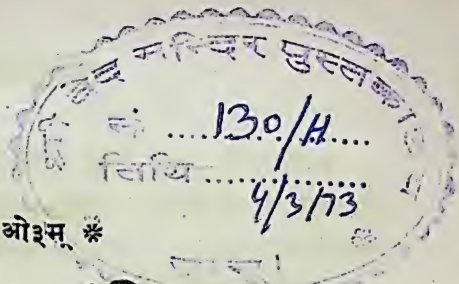 वेद मन्दिर पुस्तकालय
नं ..... 130/H .....
तिथि ..... 4/3/73
ओ३म् *